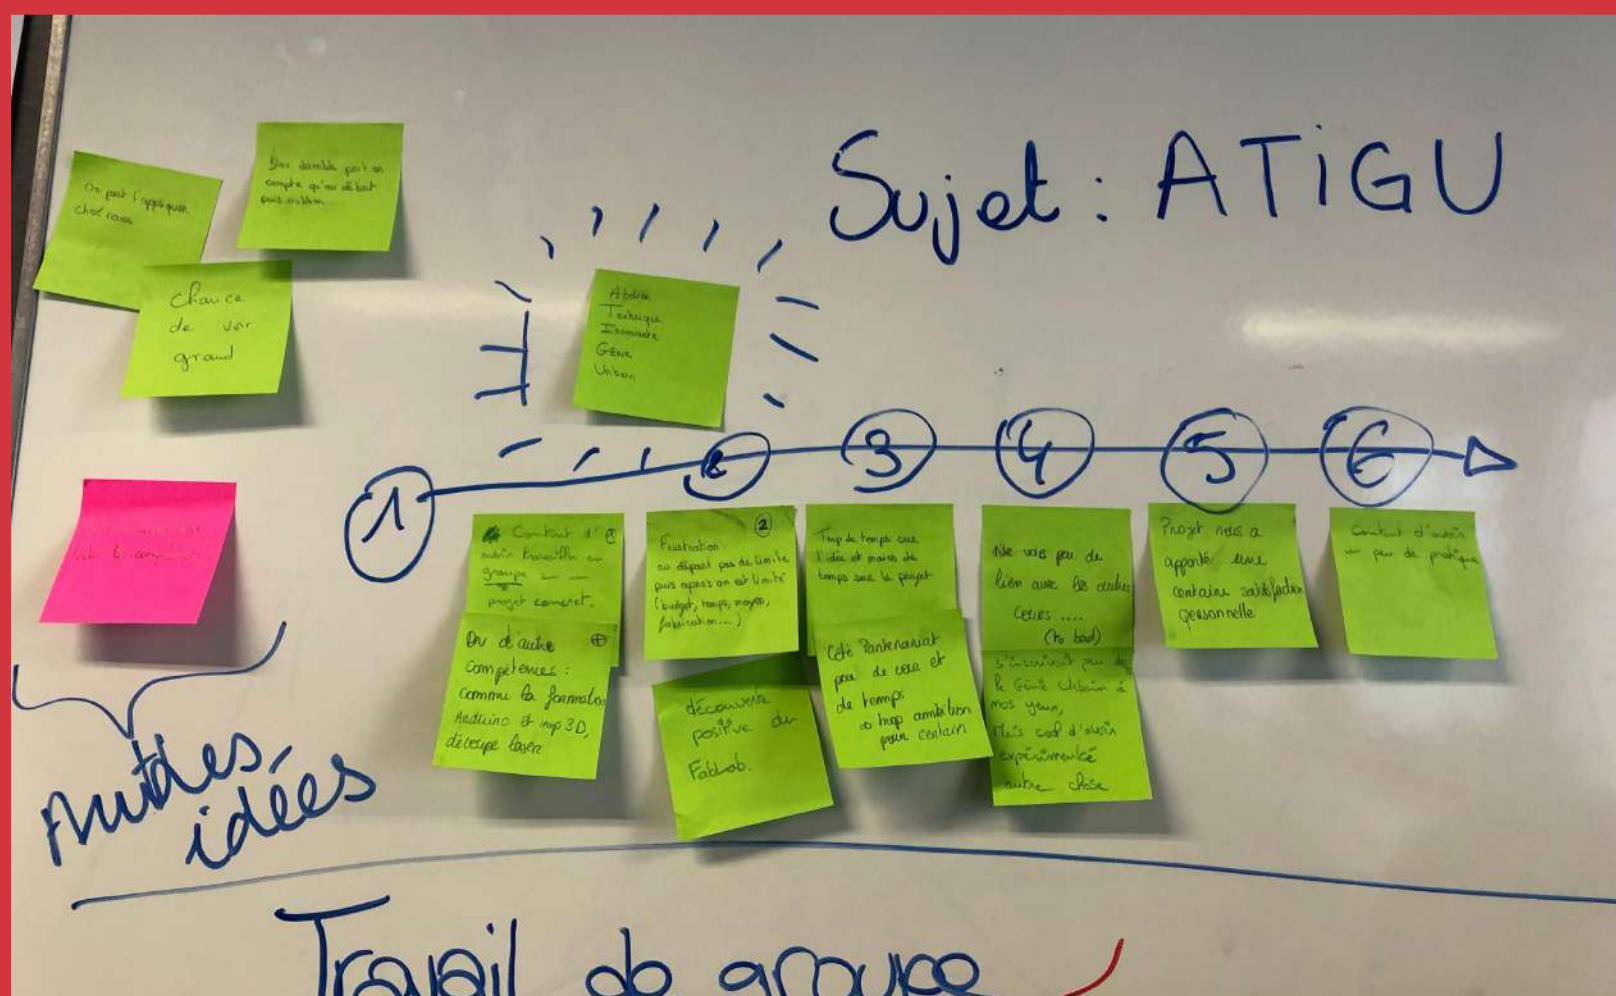 Sujet : ATiGU
On peut l'appliquer
chez nous
compte qu'au début
puis oublier
Chance
de voir
grand
Atelier
Technique
Innovante
Génie
Urbain
1
2
3
4
5
6
Content d'
avoir travaillé en
groupe sur un
projet concret.
Dv d'autre
compétences :
comme la formation
Arduino et imp 3D,
découpe laser
2
Frustration
au départ pas de limite
puis après on est limité
(budget, temps, moyen,
fabrication...)
découverte
positive du
FabLab.
Trop de temps sur
l'idée et moins de
temps sur le projet
Côté Partenariat
peu de cour et
de temps
trop ambition
pour certain
Ne vois peu de
lien avec les autres
cours ....
(to bad)
s'inscrivait peu de
le Génie Urbain à
mos yeux,
Mais cool d'avoir
expérimenté
autre chose
Projet nous a
apporté une
certaine satisfaction
personnelle
Content d'avoir
un peu de pratique
Autdes
idées
Travail de groupe